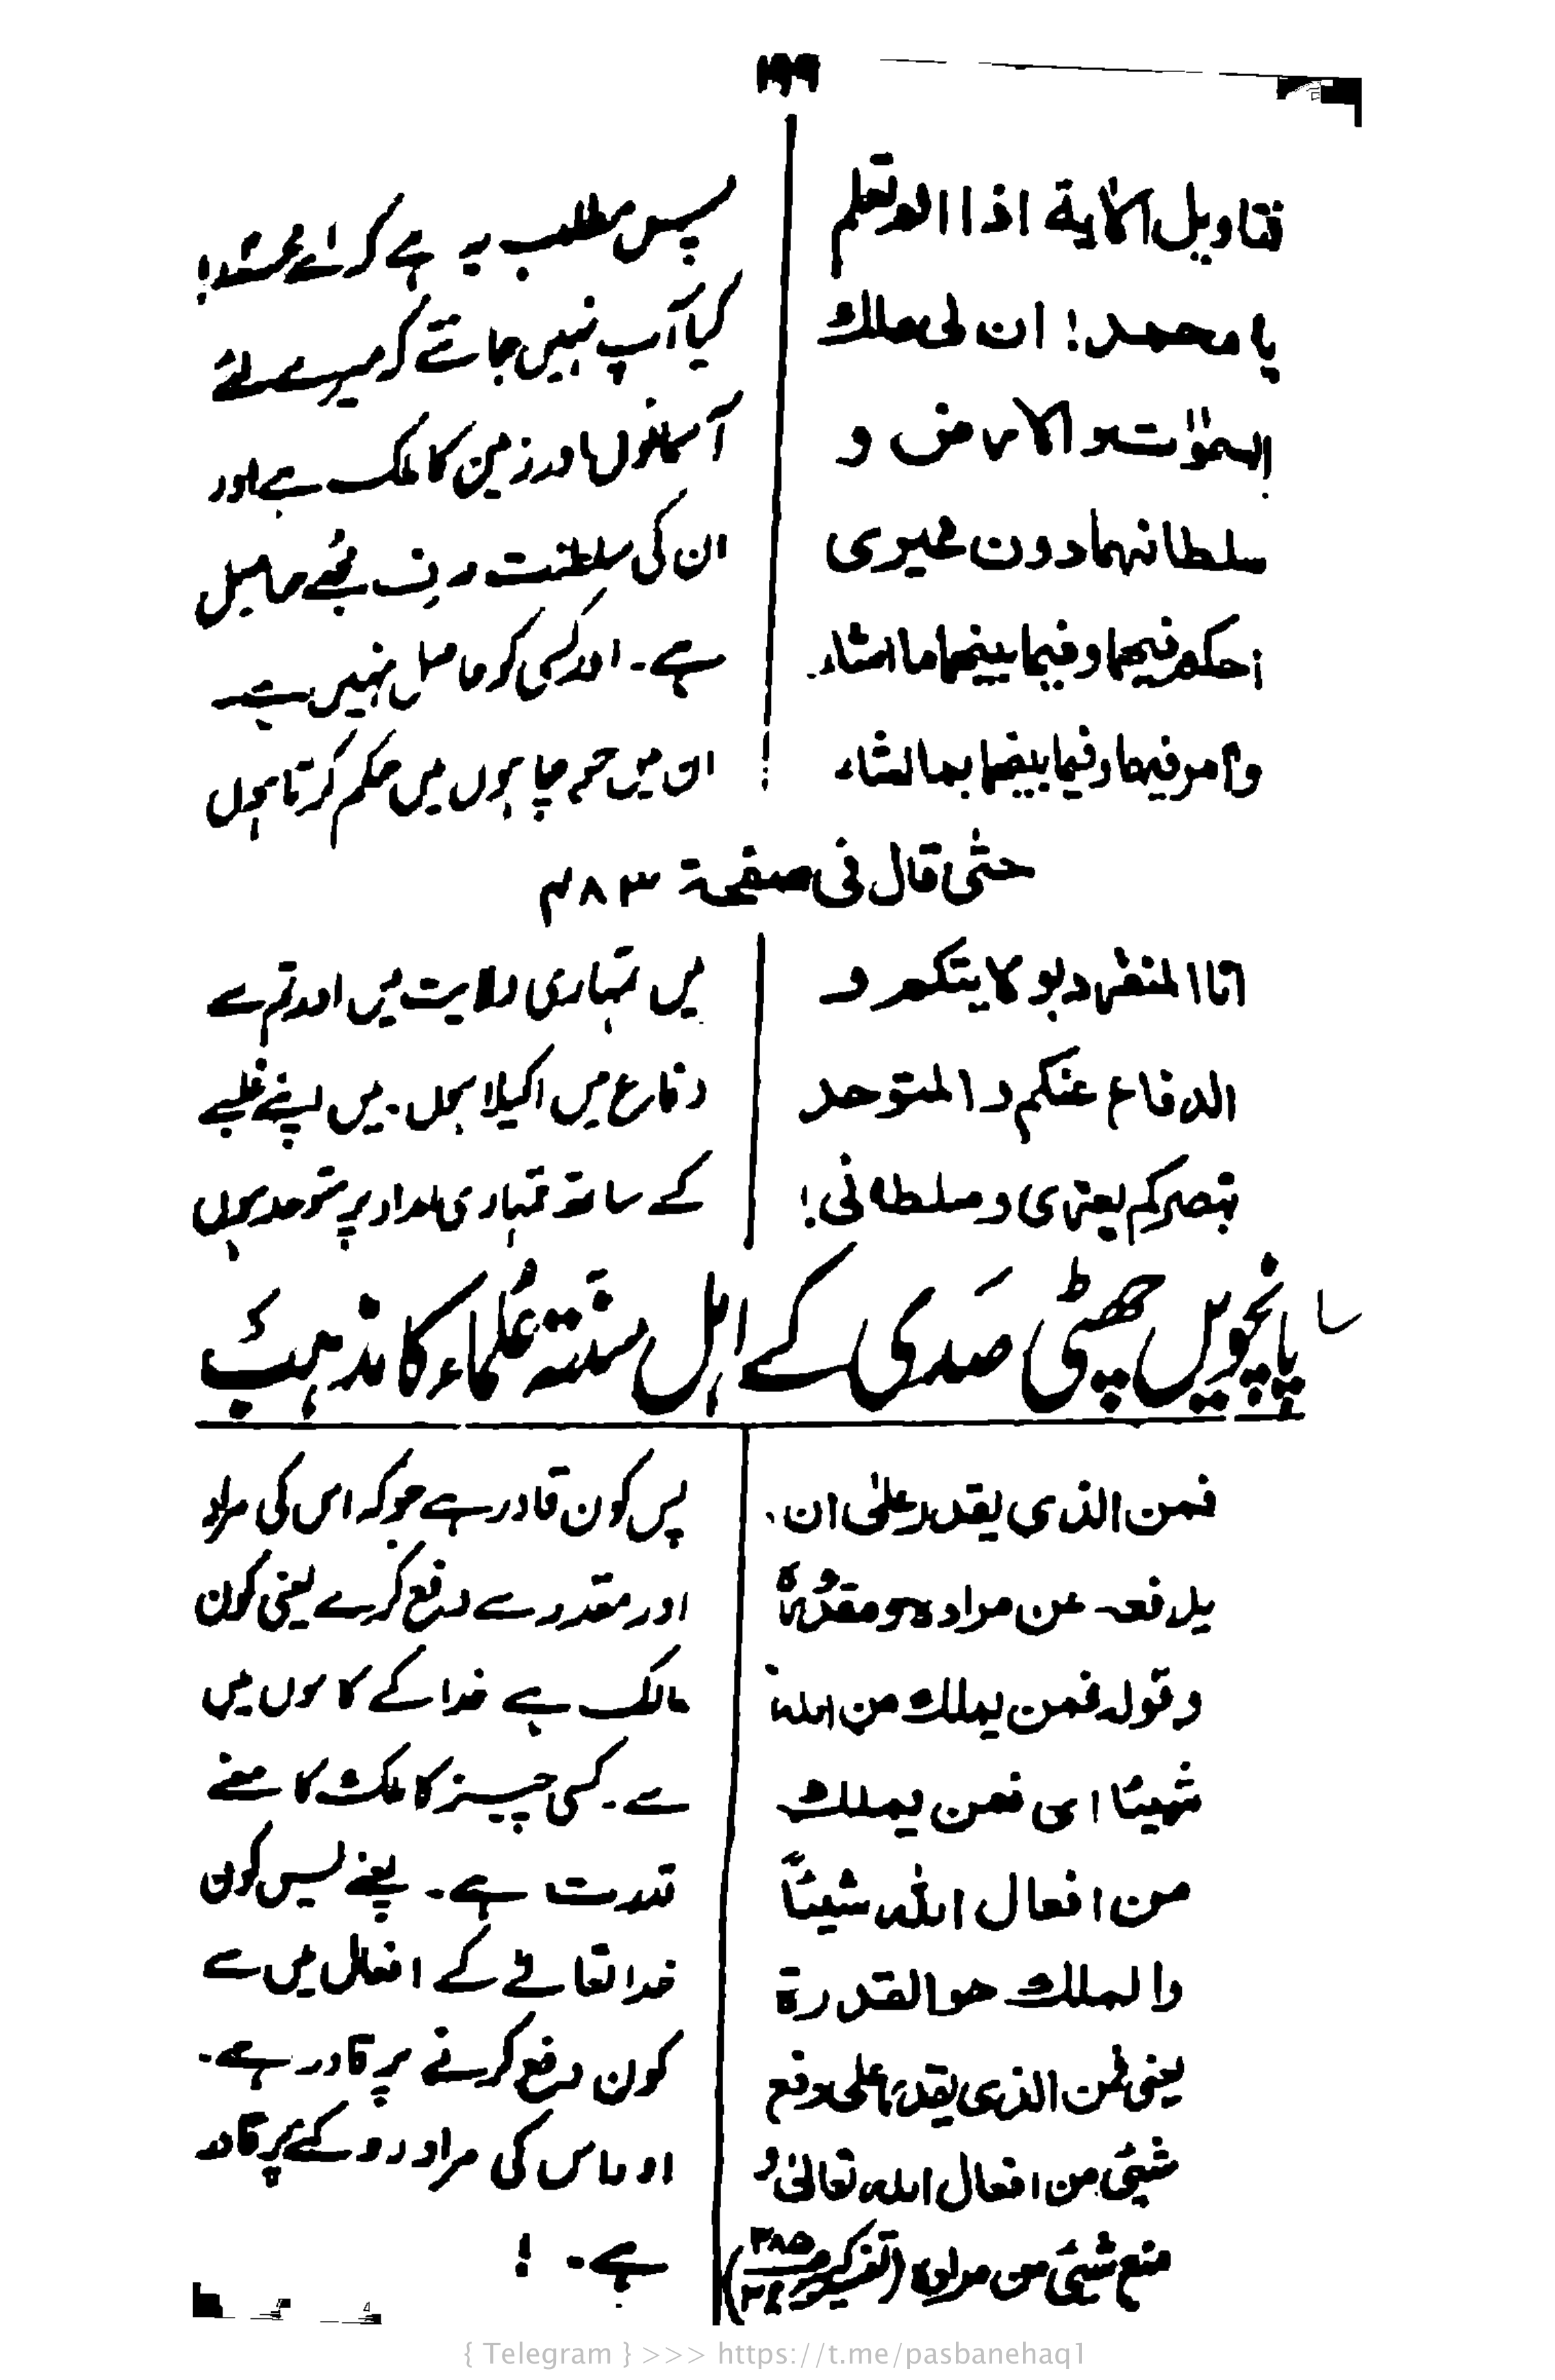 ۱۹۹
فتاویل الاٰیة اذا الم تعلم
یا محمد! ان لی ملك
السمٰوٰت و الارض و
سلطانهما دون غیری
احکم فیهما وفیما بینهما ما اشاء
واٰمر فیهما وفیما بینهما بما اشاء
پس مطلب یہ ہے کہ اے محمد!
کیا آپ نہیں جانتے کہ میرے لئے
آسمانوں اور زمین کا ملک ہے اور
ان کی سلطنت صرف مجھے حاصل
ہے۔ اور کسی کو حاصل نہیں ہے
ان میں جو چاہوں میں حکم کرتا ہوں
حتٰی قال فی صفحة ۴۸۳
انا المنفرد بولایتکم و
الدفاع عنکم والمتوحد
بنصرکم بعزی وسلطانی!
میں تمہاری ولایت میں اور تم سے
دفاع میں اکیلا ہوں۔ میں اپنے غلبے
کے ساتھ تمہاری امداد پر متوحد ہوں
پانچویں چھٹی صَدی کے اہل سنّتہ عُلماء کا مذہبُ
فمن الذی یقدر علیٰ ان
یدفعه عن مرادہ ومقدُرہٗ
وقوله فمن یملك من الله
شیئا ای فمن یملك
من افعال الله شیئاً
والملك هو القدرة
یعنی فمن الذی یقدر علی دفع
شیئی من افعال الله تعالیٰ و
منع شیئی من مرادہ (تفسیر کبیر ۳۸۵)
پس کون قادر ہے جو کہ اس کی مراد
اور مقدور سے دفع کرے یعنی کون
مالک ہے خدا کے کاموں میں
سے۔ کسی چیز کا ملک کا معنے
قدرت ہے۔ یعنے پس کون
خدا تعالےٰ کے افعال میں سے
کون دفع کرنے پر قادر ہے۔
اور اس کی مراد روکنے پر قادر
ہے۔ !
{ Telegram } >>> https://t.me/pasbanehaq1